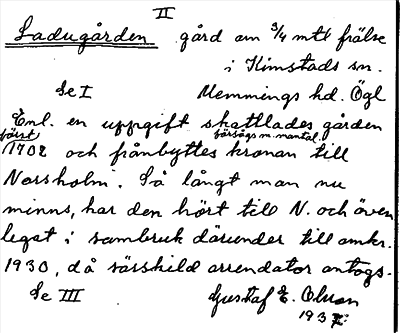 II
Ladugården gård om 3/4 mtl frälse
i Kimstads sn.
Se I Memmings hd. Ögl
Enl. en uppgift skattlades gården
först försågs m. mantal.
1702 och frånbyttes kronan till
Norsholm. Så långt man nu
minns, har den hört till N. och även
legat i sambruk därunder till omkr.
1930, då särskild arrendator antogs.
Se III Gustaf E. Olsson
1937.